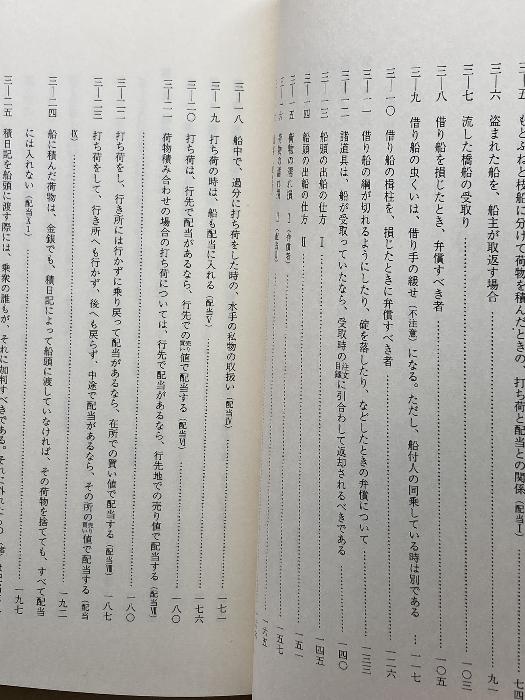 三―五 もとぶねと枝船に分けて荷物を積んだときの、打ち荷と配当との関係(配当Ⅰ)
三―六 盗まれた船を、船主が取返す場合 九一
三―七 流した橋船の受取り 一〇三
三―八 借り船を損じたとき、弁償すべき者 一〇五
三―九 借り船の虫くいは、借り手の緩せ(不注意)になる。ただし、船付人の同乗している時は別である 一一七
三―一〇 借り船の楫柱を、損じたときに弁償すべき者 一二六
三―一一 借り船の綱が切れるようにしたり、碇を落したり、などしたときの弁償について 一三三
三―一二 諸道具は、船が受取っていたなら、受取時の注文目録に引合わして返却されるべきである 一四〇
船頭の出船の仕方 Ⅰ 一四五
三―一四 船頭の出船の仕方 Ⅱ 一五一
三―一五 荷物の濡れ損 Ⅰ(弁償者) 一五七
一六五
三―一八 船中で、過分に打ち荷をした時の、水手の私物の取扱い(配当Ⅳ) 一七一
三―一九 打ち荷の時は、船も配当に入れる(配当Ⅴ) 一七六
三―二〇 打ち荷は、行先で配当があるなら、行先での売り買い値で配当する(配当Ⅵ) 一八〇
三―二一 荷物積み合わせの場合の打ち荷については、行先で配当があるなら、行先地での売り値で配当する(配当Ⅶ)
一八〇
三―二二 打ち荷をし、行き所には行かずに乗り戻って配当があるなら、在所での買い値で配当する(配当Ⅷ) 一八七
三―二三 打ち荷をして、行き所へも行かず、後へも戻らず、中途で配当があるなら、その所の売り買い値で配当する(配当
Ⅸ) 一九二
三―二四 船に積んだ荷物は、金銀でも、積日記によって船頭に渡していなければ、その荷物を捨てても、すべて配当
には入れない(配当Ⅹ) 一九七
三―二五 積日記を船頭に渡す際には、乗衆の誰もが、それに加判すべきである。